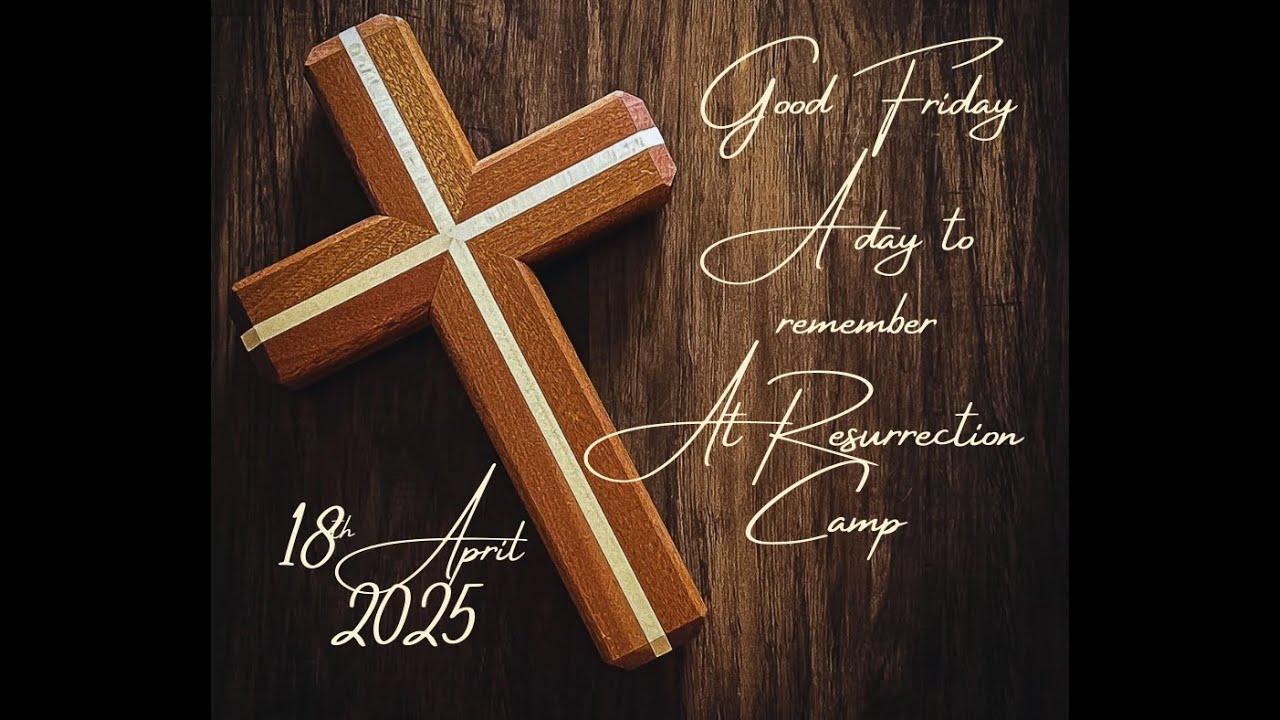 Good Friday
A day to
remember
At Resurrection
Camp
18th April
2025